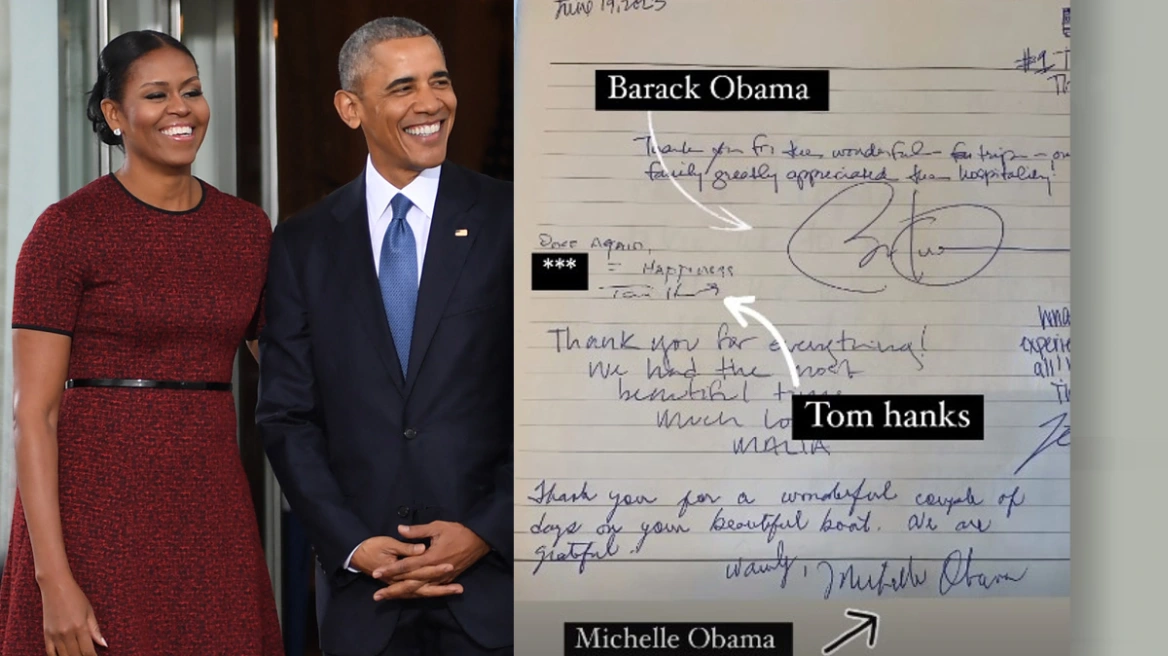 June 19, 2023
#1 T
Th
Barack Obama
Thank you for the wonderful trip — our
family greatly appreciated the hospitality!
Once Again,
***
= Happiness
Tom Hanks
Thank you for everything!
We had the most
beautiful time
Much Lo
MALIA
experie
all!
Th
Tom hanks
Thank you for a wonderful couple of
days on your beautiful boat. We are
grateful.
Warmly, Michelle Obama
Michelle Obama